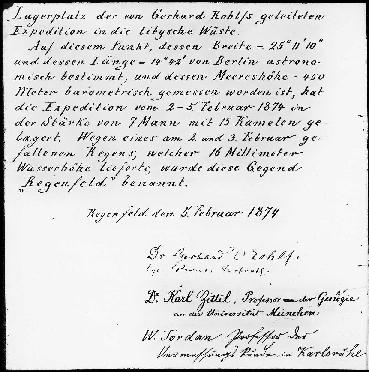 Lagerplatz der von Gerhard Rohlfs geleiteten
Expedition in die libysche Wüste.
Auf diesem Punkt, dessen Breite = 25° 11' 10"
und dessen Länge = 14° 42' von Berlin astrono-
misch bestimmt, und dessen Meereshöhe = 450
Meter barometrisch gemessen worden ist, hat
die Expedition vom 2-5. Februar 1874 in
der Stärke von 7 Mann mit 15 Kamelen ge-
lagert. Wegen eines am 2. und 3. Februar ge-
fallenen Regens, welcher 16 Millimeter
Wasserhöhe lieferte, wurde diese Gegend
„Regenfeld" benannt.
Regenfeld den 5. Februar 1874
Dr Gerhard Rohlfs.
Dr. Karl Zittel, Professor der Geologie
an der Universität München.
W. Jordan Professor der
in Karlsruhe